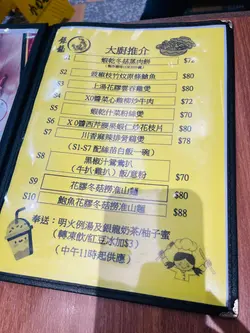 銀龍
大廚推介
S1 蝦乾冬菇蒸肉餅 $72
S2 豉椒枝竹炆原條鱸魚 $80
S3 上湯花膠雲吞雞煲 $80
S4 XO醬菜心雞柳炒牛肉 $72
S5 蝦乾汁菜粉絲煲 $70
S6 XO醬西芹腰果蝦仁炒花枝片 $80
S7 川香麻辣排骨雞煲 $78
(S1-S7 配絲苗白飯一碗)
S8 黑椒汁鴛鴦扒 $70
(牛扒雞扒)飯/意粉
S9 花膠冬菇撈准山麵 $80
S10 鮑魚花膠冬菇撈准山麵 $88
奉送：明火例湯及銀龍奶茶/柚子蜜
(轉凍飲/紅豆冰加$3)
(中午11時起供應)